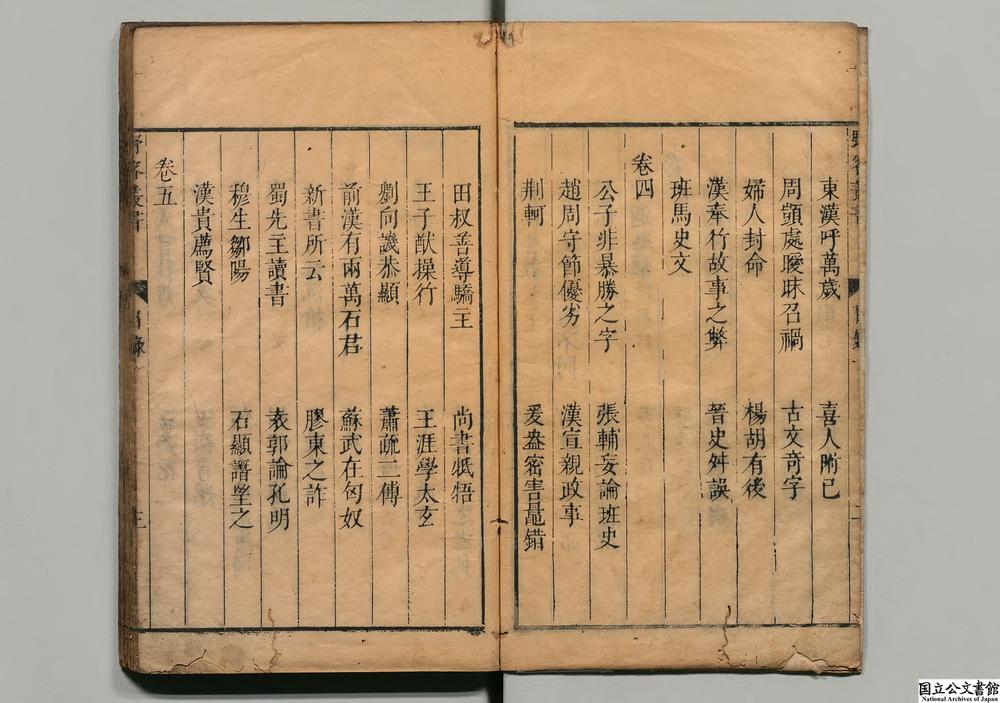 東漢呼萬歲　喜人附己
周顗處曖昧召禍　古文奇字
婦人封命　楊胡有後
漢奉行故事之弊　晉史舛誤
班馬史文
卷四
公子非暴勝之字　張輔妄論班史
趙周守節優劣　漢宣親政事
荆軻　爰盎密害鼂錯
田叔善導驕王　尚書牴牾
王子猷操行　王涯學太玄
劉向譏恭顯　蕭疏二傳
前漢有兩萬石君　蘇武在匈奴
新書所云　膠東之詐
蜀先主讀書　袁郭論孔明
穆生鄒陽　石顯譖堅之
漢貴薦賢
卷五
野客叢書　目錄　三
国立公文書館
National Archives of Japan